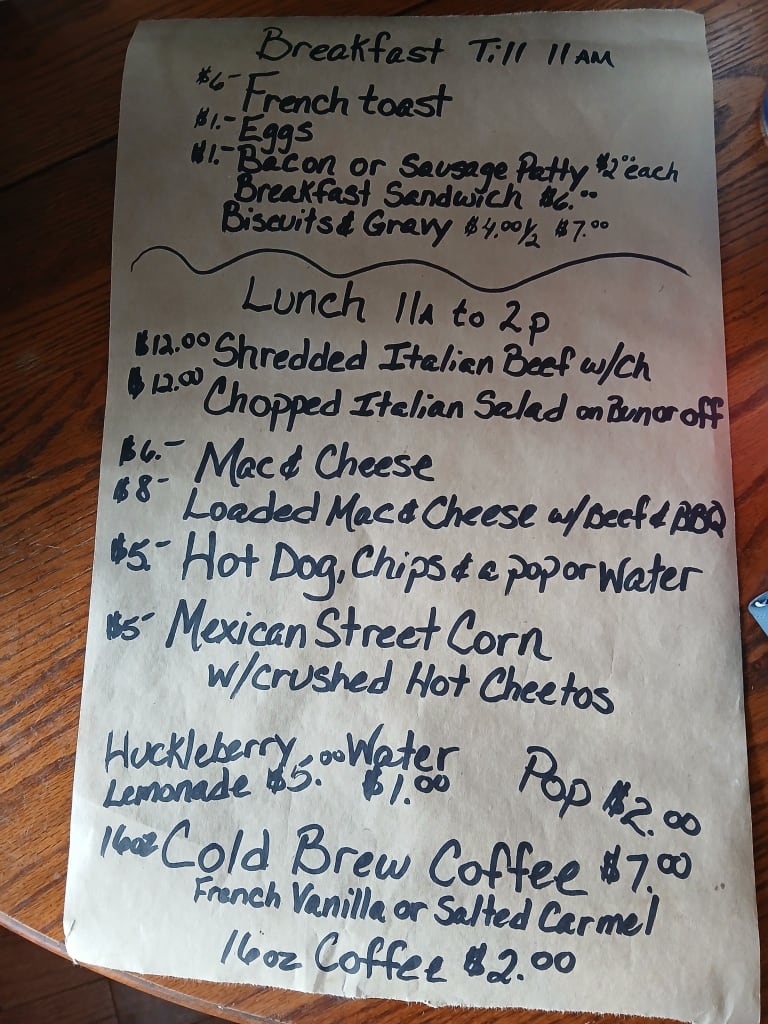 Breakfast Till 11 AM
$6- French toast
$1.- Eggs
$1.- Bacon or Sausage Patty $2.00 each
Breakfast Sandwich $6.00
Biscuits & Gravy $4.00 1/2 $7.00
Lunch 11A to 2p
$12.00 Shredded Italian Beef w/ch
$12.00 Chopped Italian Salad on Bun or off
$6.- Mac & Cheese
$8- Loaded Mac & Cheese w/Beef & BBQ
$5.- Hot Dog, Chips & a pop or Water
$5- Mexican Street Corn
w/crushed Hot Cheetos
Huckleberry Lemonade $5.00
Water $1.00
Pop $2.00
16oz Cold Brew Coffee $7.00
French Vanilla or Salted Carmel
16oz Coffee $2.00